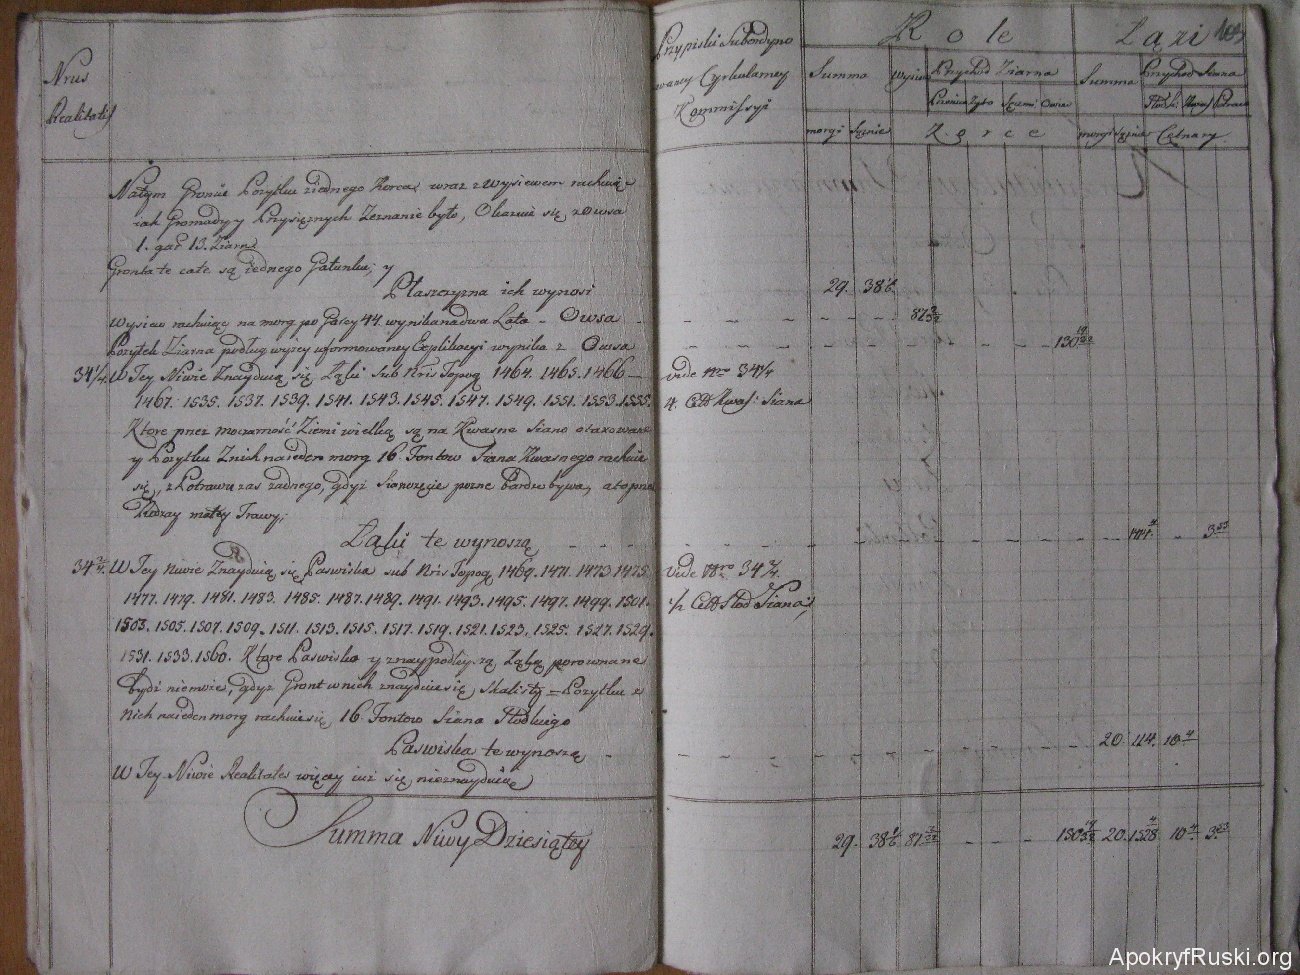 Nrus
Realitatis
Na tym Groncie Pożytku z iednego Korca wraz z wysiewem rachuiąc
iak Gromady y Przysięznych Zeznanie było, Okazuie się z Owsa
1. gar 13. Ziarna
Gronta te cale są iednego Gatunku; y
Płaszczyzna ich wynosi
Wysiew rachuiąc na morg po Garcy 44. wynika na dwa Lata - Owsa
Pożytek Ziarna podług wyżey uformowaney Explikacyi wynika z Owsa
34 1/4. W Tey Niwie Znayduią się Łąki sub Nris Topog 1464. 1465. 1466
1467. 1535. 1537. 1539. 1541. 1543. 1545. 1547. 1549. 1551. 1553. 1555.
Ktore przez moczarność Ziemi wielką są na Kwasne Siano otaxowane
y Pożytku Z nich na ieden morg 16. Fontow Siana Kwasnego rachuie
się, z Potrawu zas żadnego, gdyż Sianożęcie pozne bardzo bywa, a to prze
małey Trawy;
Łąki te wynoszą
34 2/4. W Tey Niwie Znayduią się Paswiska sub Nris Topog 1469. 1471. 1473. 1475.
1477. 1479. 1481. 1483. 1485. 1487. 1489. 1491. 1493. 1495. 1497. 1499. 1501.
1503. 1505. 1507. 1509. 1511. 1513. 1515. 1517. 1519. 1521. 1523. 1525. 1527. 1529.
1531. 1533. 1560. Ktore Paswiska y z naypodleyszą Łąką porownane
bydź niemoże, gdyz Gront w nich znayduie się Skalisty = Pożytku z
nich na ieden morg rachuie się 16. Fontow Siana Słodkiego
Paswiska te wynoszą
W Tey Niwie Realitates więcey iuż się nieznayduią
Summa Niwy Dziesiątey
Przypiski Subordyno
waney Cyrkularney
Kommissyi
Role
Łąki
Summa
Wysiew
Przychod Ziarna
Summa
Przychod Siana
Pszenica
Żyto
Jęczmi
Owsa
Słodk:
Kwaś
Potrawu
morgi
Sążnie
Korce
morgi
Sążnie
Cetnary
29. 38 1/6
87 3/32
130 19/32
vide Nro 34 1/4
4. Cett Kwaś: Siana
3 53
vide Nro 34 2/4.
1/2 Cett Słod Siana;
20. 114. 10
29. 38 1/6 87 3/32 130 19/32 20. 1528 10 3 53
ApokryfRuski.org